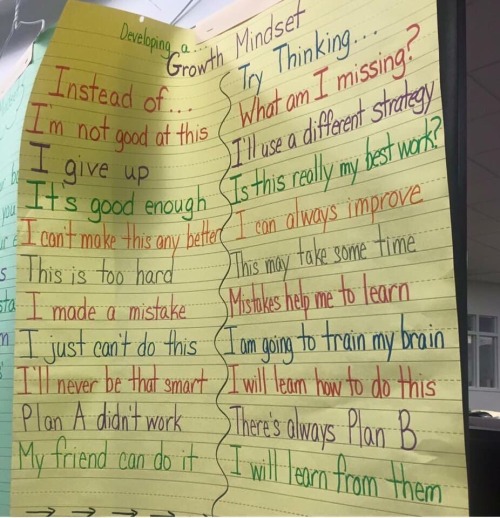 Developing a...
Growth Mindset
Instead of... Try Thinking...
I'm not good at this What am I missing?
I give up I'll use a different strategy
It's good enough Is this really my best work?
I can't make this any better I can always improve
This is too hard This may take some time
I made a mistake Mistakes help me to learn
I just can't do this I am going to train my brain
I'll never be that smart I will learn how to do this
Plan A didn't work There's always Plan B
My friend can do it I will learn from them